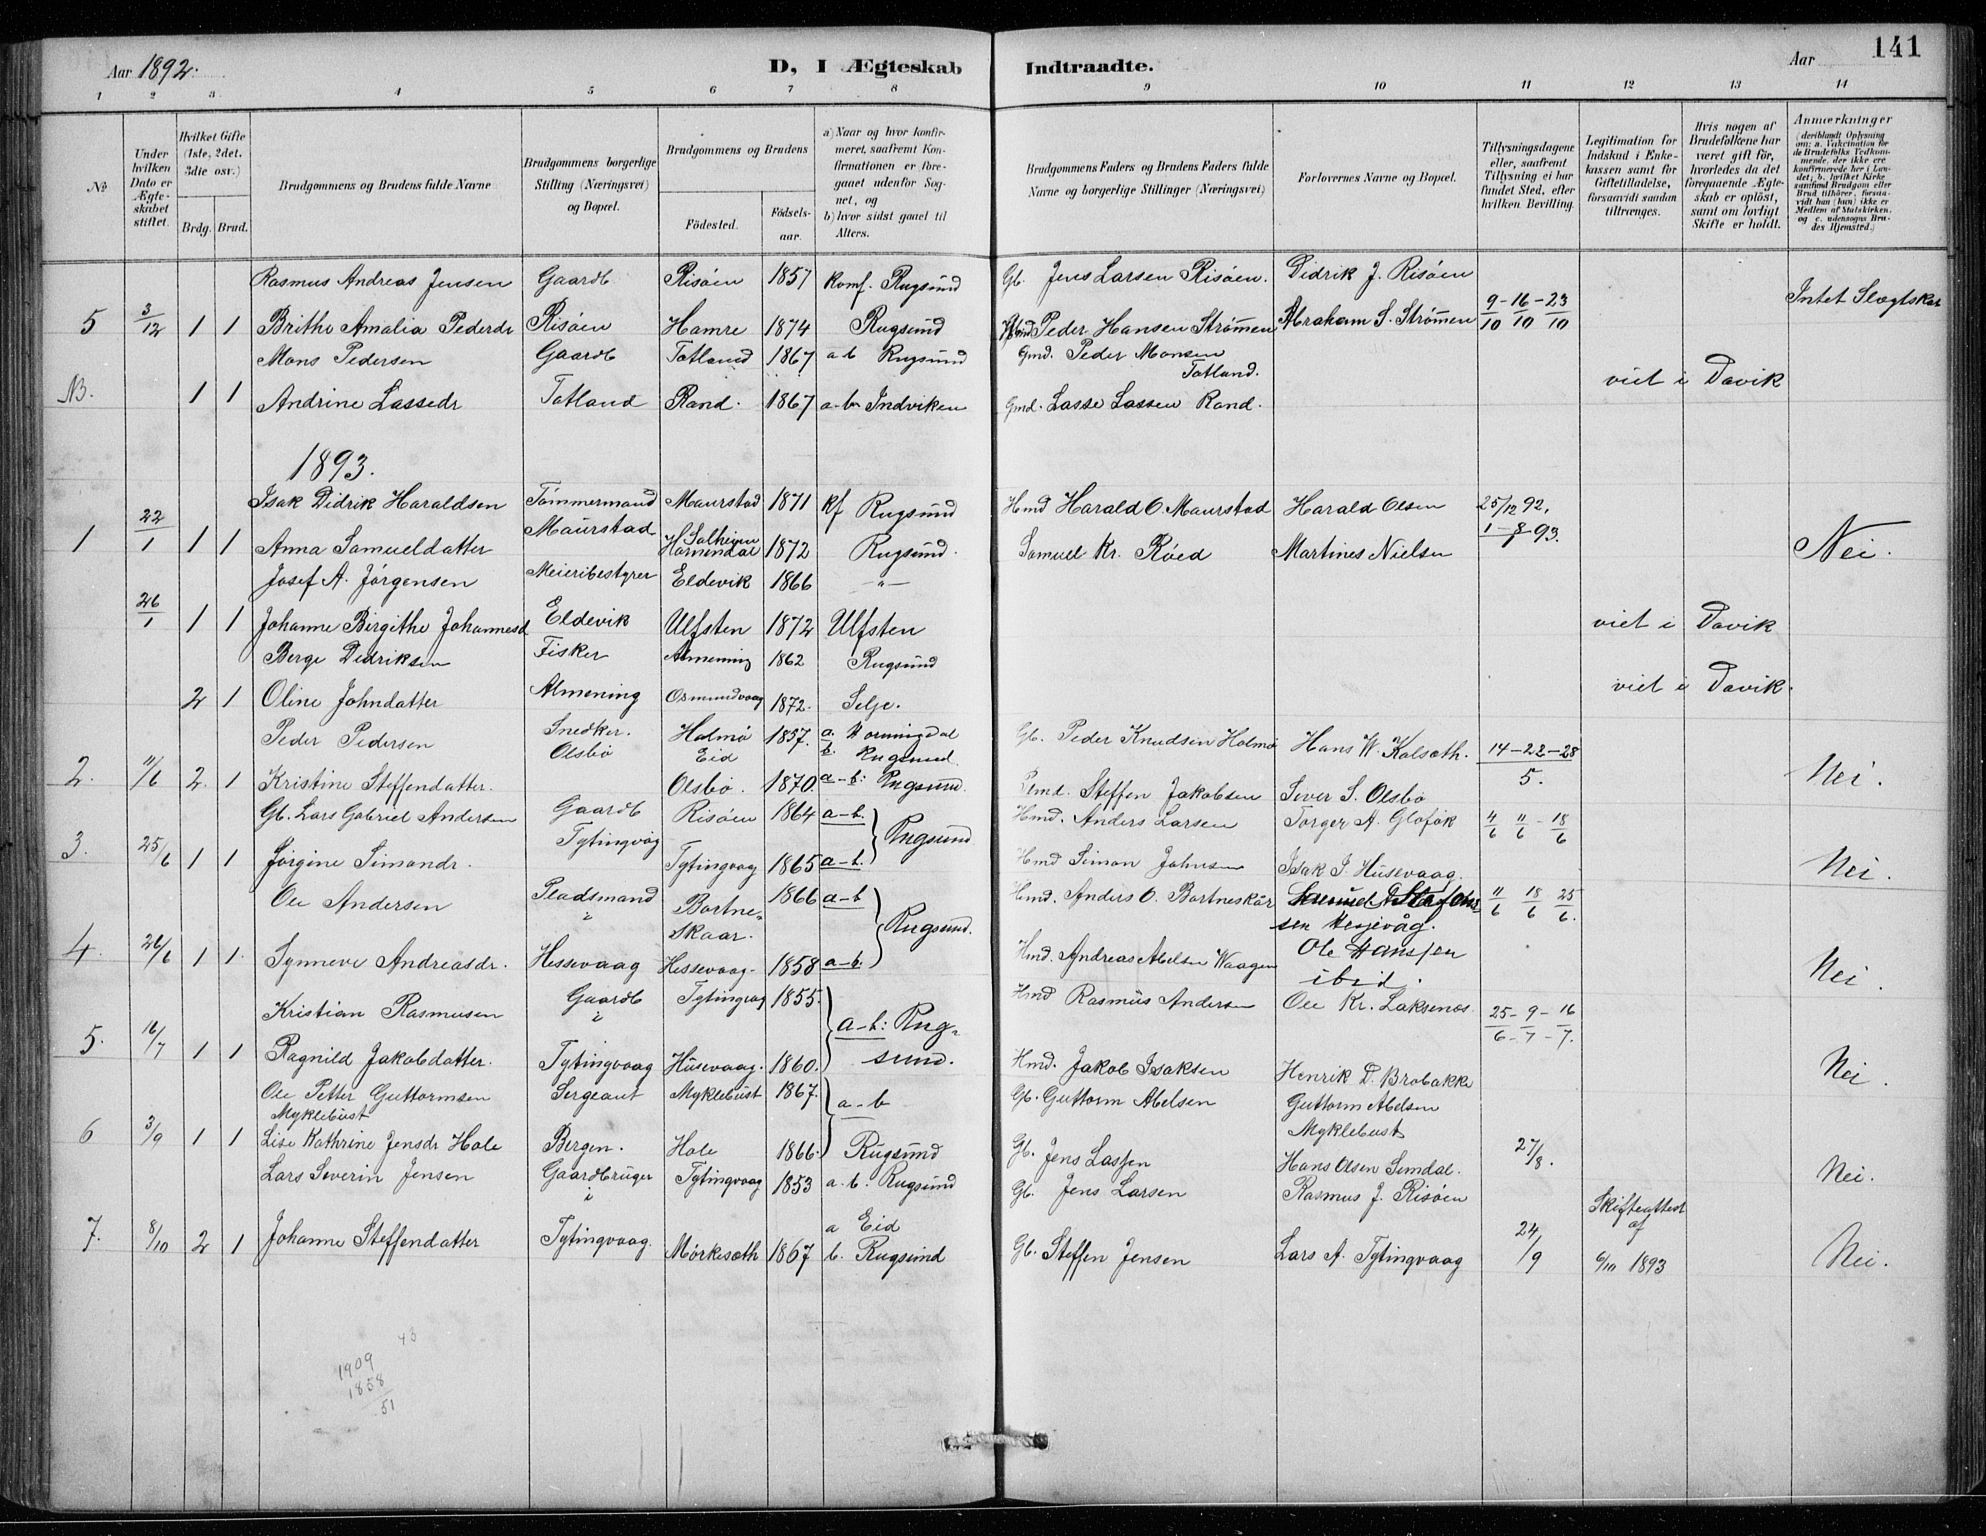 Aar 1892.
D, I Ægteskab Indtraadte.
Aar
141
1 2 3 4 5 6 7 8 9 10 11 12 13 14
№
Under hvilken Dato er Ægteskabet stiftet.
Hvilket Gifte (1ste, 2det, 3die osv.)
Brdg. Brud.
Brudgommens og Brudens fulde Navne
Brudgommens borgerlige Stilling (Næringsvei) og Bopæl.
Brudgommens og Brudens
Fødested. Fødselsaar.
a) Naar og hvor konfirmeret, saafremt Konfirmationen er foregaaet udenfor Sognet, og
b) hvor sidst gaaet til Alters.
Brudgommens Faders og Brudens Faders fulde Navne og borgerlige Stillinger (Næringsvei)
Forlovernes Navne og Bopæl.
Tillysningsdagene eller, saafremt Tillysning ei har fundet Sted, efter hvilken Bevilling.
Legitimation for Indskud i Enkekassen samt for Giftetilladelse, forsaavidt saadan tiltrænges.
Hvis nogen af Brudefolkene har været gift før, hvorledes da det foregaaende Ægteskab er opløst, samt om lovligt Skifte er holdt.
Anmærkninger
(deriblandt Oplysning om: a. Vaccination for de Brudefolks Vedkommende, der ikke ere konfirmerede her i Landet; b. hvilket Kirkesamfund Brudgom eller Brud tilhører, forsaavidt han (hun) ikke er Medlem af Statskirken, og c. udensogns Brudes Hjemsted.)
Rasmus Andreas Jensen Gaardb Risøen 1857 komf. Rugsund Gb. Jens Larsen Risøen. Didrik J. Risøen
5 3/12 1 1 Brithe Amalia Pedersdr Risøen Hamre 1874 Rugsund Peder Hansen Strømmen Abraham S. Strømmen 9-16-23/10 10 10 Intet Slægtskab
Mons Pedersen Gaardb Totland 1867 a-b Rugsund Gmd. Peder Monsen Totland.
NB. 1 1 Andrine Lassedr Totland Rand. 1867 a-b Indviken Gmd. Lasse Lassen Rand. viet i Davik
1893.
Isak Didrik Haraldsen Tømmermand Maurstad 1871 kf Rugsund Hmd Harald O. Maurstad Harald Olsen 25/12 92.
1 22/1 1 1 Anna Samueldatter Maurstad Solheim 1872 Rugsund. Samuel Kr. Røed Martines Nielsen 1-8/1 93. Nei.
Josef A. Jørgensen Meieribestyrer Eldevik 1866 -"-
26/1 1 1 Johanne Birgithe Johannesd Eldevik Ulfsten 1872 Ulfsten viet i Davik
Berge Didriksen Fisker Almening 1862 Rugsund
2 1 Oline Johndatter Almening Osmundvaag 1872. Selje. viet i Davik.
Peder Pedersen Snedker. Olsbø Holmø Eid 1857. a. Horningdal b. Rugsund. Gb. Peder Knudsen Holmø Hans W. Kalsæth. 14-22-28
2. 11/6 2. 1 Kristine Steffendatter. Olsbø. 1870. a-b: Rugsund. Steffen Jakobsen Sever S. Olsbø 5. Nei.
Gb. Lars Gabriel Andersen Gaardb Risøen 1864 a-b. Hmd. Anders Larsen Torger A. Gloføk 4/6 11/6 - 18/6
3. 25/6 1 1 Jørgine Simondr. Tytingvåg Tytingvaag 1865 a-b. Rugsund Hmd Simon Johnsen Isak S. Husevaag. Nei.
Ole Andersen Pladsmand Bortneskaar. 1866 a-b Hmd. Anders O. Bortneskår 11/6 18/6 25/6.
sen Hessevåg.
4. 26/6 1 1. Synneve Andreasdr. Hessevaag Hessevaag. 1858 a-b. Rugsund. Hmd. Andreas Abelsen Waagen Ole Hanssen ibid. Nei.
Kristian Rasmusen Gaardb Tytingvaag 1855. Hmd Rasmus Andersen Ole Kr. Laksenæs. 25-9-16
5. 16/7 1 1 Ragnild Jakobdatter. Tytingvaag Husevaag. 1860. a-b: Rugsund. Hmd. Jakob Isaksen Henrik D. Brobakke 6-7-7. Nei.
Ole Petter Guttormsen Myklebust Sergeant Myklebust 1867. a-b Gb. Guttorm Abelsen Guttorm Abelsen Myklebust
6 3/9 1 1 Lise Kathrine Jensdr Hole Bergen. Hole 1866. Rugsund Gb. Jens Lassen Hans Olsen Semdal. 27/8. Nei.
Lars Severin Jensen Gaardbruger Tytingvaag 1853 a.b. Rugsund Gb. Jens Larsen Rasmus J. Risøen Skifteattest af
7. 8/10 2 1 Johanne Steffendatter Tytingvaag. Mørkesæth 1867 a Eid b. Rugsund Gb. Steffen Jensen Lars A. Tytingvaag 24/9 6/10 1893 Nei.
43
1909
1858
51